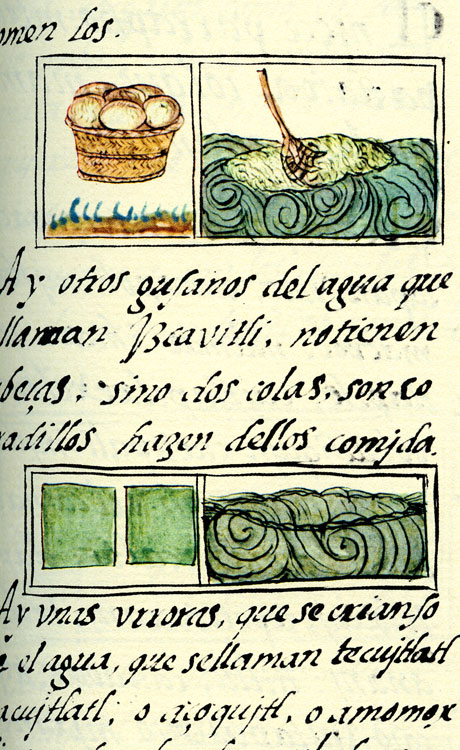 omen los.
Ay otros gusanos del agua que
llaman Yzcavitli, notienen
beças, sino dos colas, son co
radillos hazen dellos comida.
Ay unas urroras, que se crian so
el agua, que se llaman tecujtlatl
acujtlatl, o açoqujtl, o amomox